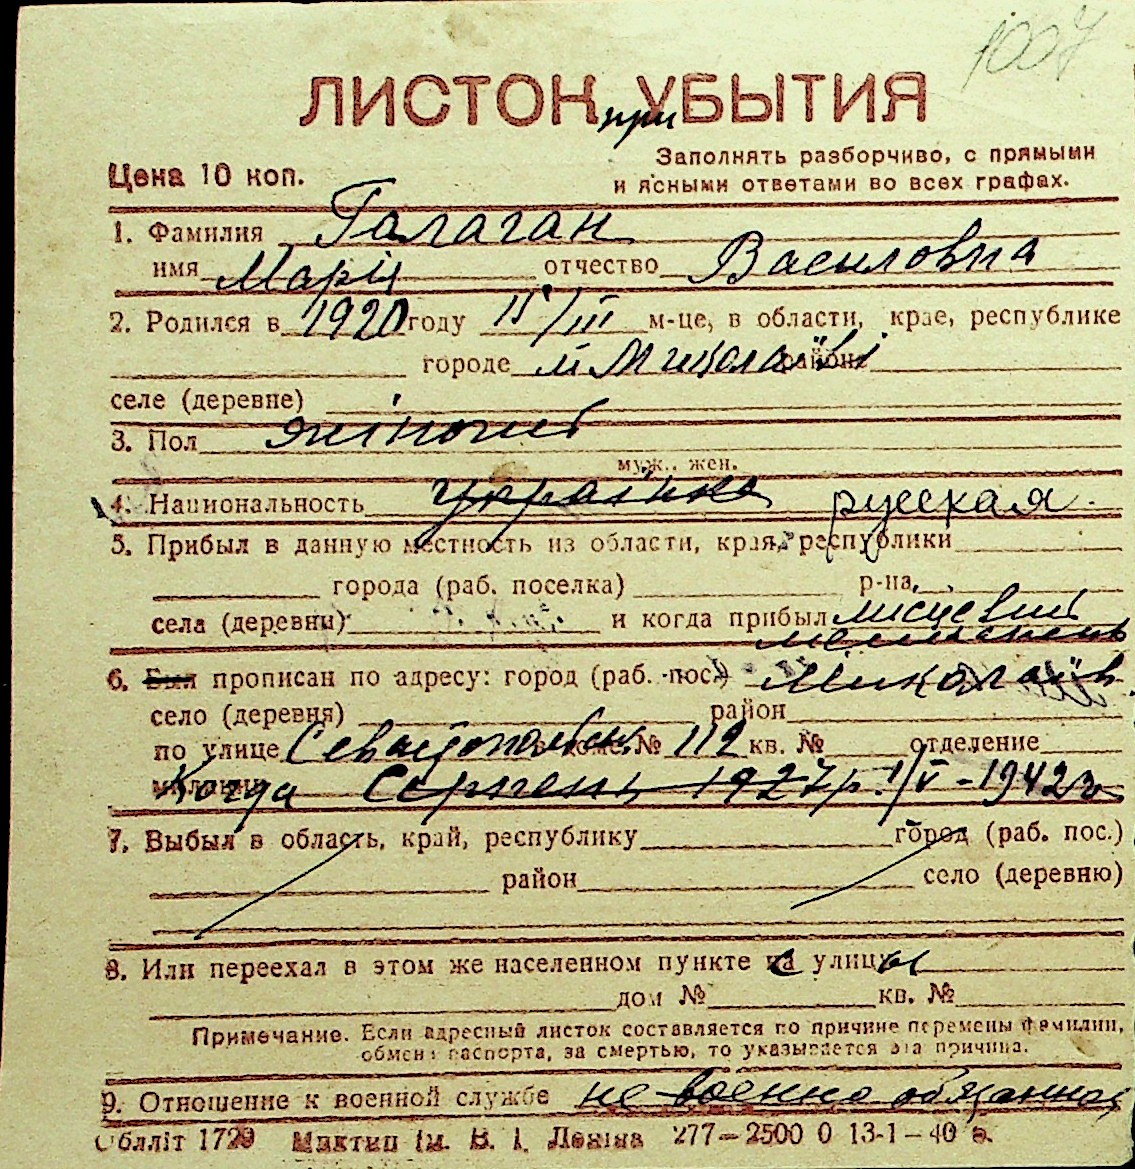 1007
ЛИСТОК при УБЫТИЯ
Цена 10 коп.
Заполнять разборчиво, с прямыми
и ясными ответами во всех графах.
1. Фамилия Галаган
имя Марія отчество Василовна
2. Родился в 1920 году 15/III м-це, в области, крае, республике
городе м Миколаїві районе
селе (деревне)
3. Пол жіночий
муж., жен.
4. Национальность українка русская
5. Прибыл в данную местность из области, края, республики
города (раб. поселка) р-на
села (деревни) и когда прибыл місцевий
6. Был прописан по адресу: город (раб. пос.) Миколаїв
село (деревня) район
по улице Севастопольск в доме № 112 кв. № отделение
милиции Когда Серпень 1927р. 1/V-1942г
7. Выбыл в область, край, республику город (раб. пос.)
район село (деревню)
8. Или переехал в этом же населенном пункте на с улицы
дом № кв. №
Примечание. Если адресный листок составляется по причине перемены фамилии,
обмена паспорта, за смертью, то указывается эта причина.
9. Отношение к военной службе не военно обязанная
Обліт 1729 Миктип ім. В. І. Леніна 277—2500 0 13-1—40 р.